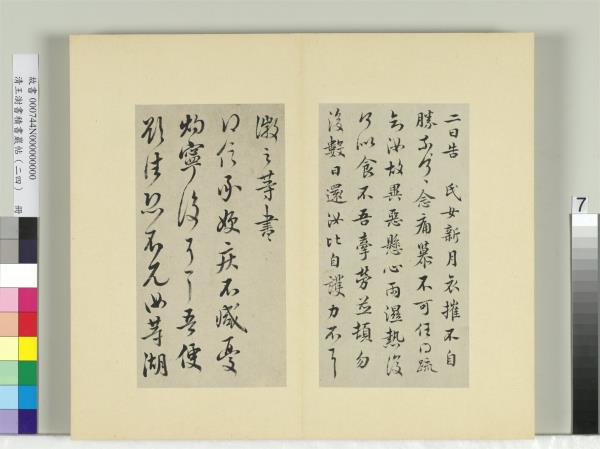 故書 000744N000000000
清王澍書積書巖帖（二四） 冊
7
二日告 氏女新月哀摧不自
勝奈何〻念痛慕不可任得疏
知汝故異惡懸心雨濕熱復
何似食不吾牽勞並頓勿
復數日還汝比自護力不具
徽之等書
得信承嫂疾不減憂
灼寧復可言吾便
欲往恐不見汝等湖